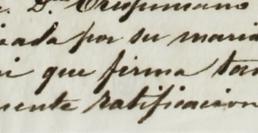 Dn Crispiniano
ada por su mari
que firma ta
mente ratificacion